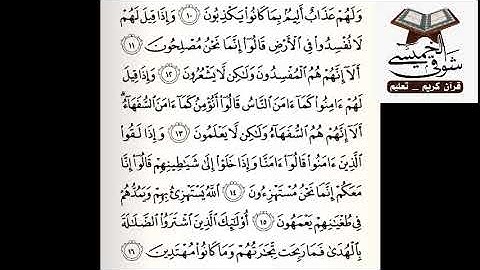 وَلَهُمْ عَذَابٌ أَلِيمٌۢ بِمَا كَانُوا۟ يَكْذِبُونَ ١٠ وَإِذَا قِيلَ لَهُمْ
لَا تُفْسِدُوا۟ فِى ٱلْأَرْضِ قَالُوٓا۟ إِنَّمَا نَحْنُ مُصْلِحُونَ ١١
أَلَآ إِنَّهُمْ هُمُ ٱلْمُفْسِدُونَ وَلَـٰكِن لَّا يَشْعُرُونَ ١٢ وَإِذَا قِيلَ
لَهُمْ ءَامِنُوا۟ كَمَآ ءَامَنَ ٱلنَّاسُ قَالُوٓا۟ أَنُؤْمِنُ كَمَآ ءَامَنَ ٱلسُّفَهَآءُ ۗ
أَلَآ إِنَّهُمْ هُمُ ٱلسُّفَهَآءُ وَلَـٰكِن لَّا يَعْلَمُونَ ١٣ وَإِذَا لَقُوا۟
ٱلَّذِينَ ءَامَنُوا۟ قَالُوٓا۟ ءَامَنَّا وَإِذَا خَلَوْا۟ إِلَىٰ شَيَـٰطِينِهِمْ قَالُوٓا۟ إِنَّا
مَعَكُمْ إِنَّمَا نَحْنُ مُسْتَهْزِءُونَ ١٤ ٱللَّهُ يَسْتَهْزِئُ بِهِمْ وَيَمُدُّهُمْ
فِى طُغْيَـٰنِهِمْ يَعْمَهُونَ ١٥ أُو۟لَـٰٓئِكَ ٱلَّذِينَ ٱشْتَرَوُا۟ ٱلضَّلَـٰلَةَ
بِٱلْهُدَىٰ فَمَا رَبِحَت تِّجَـٰرَتُهُمْ وَمَا كَانُوا۟ مُهْتَدِينَ ١٦
شوقي الخميسي
قرآن كريم _ تعليم